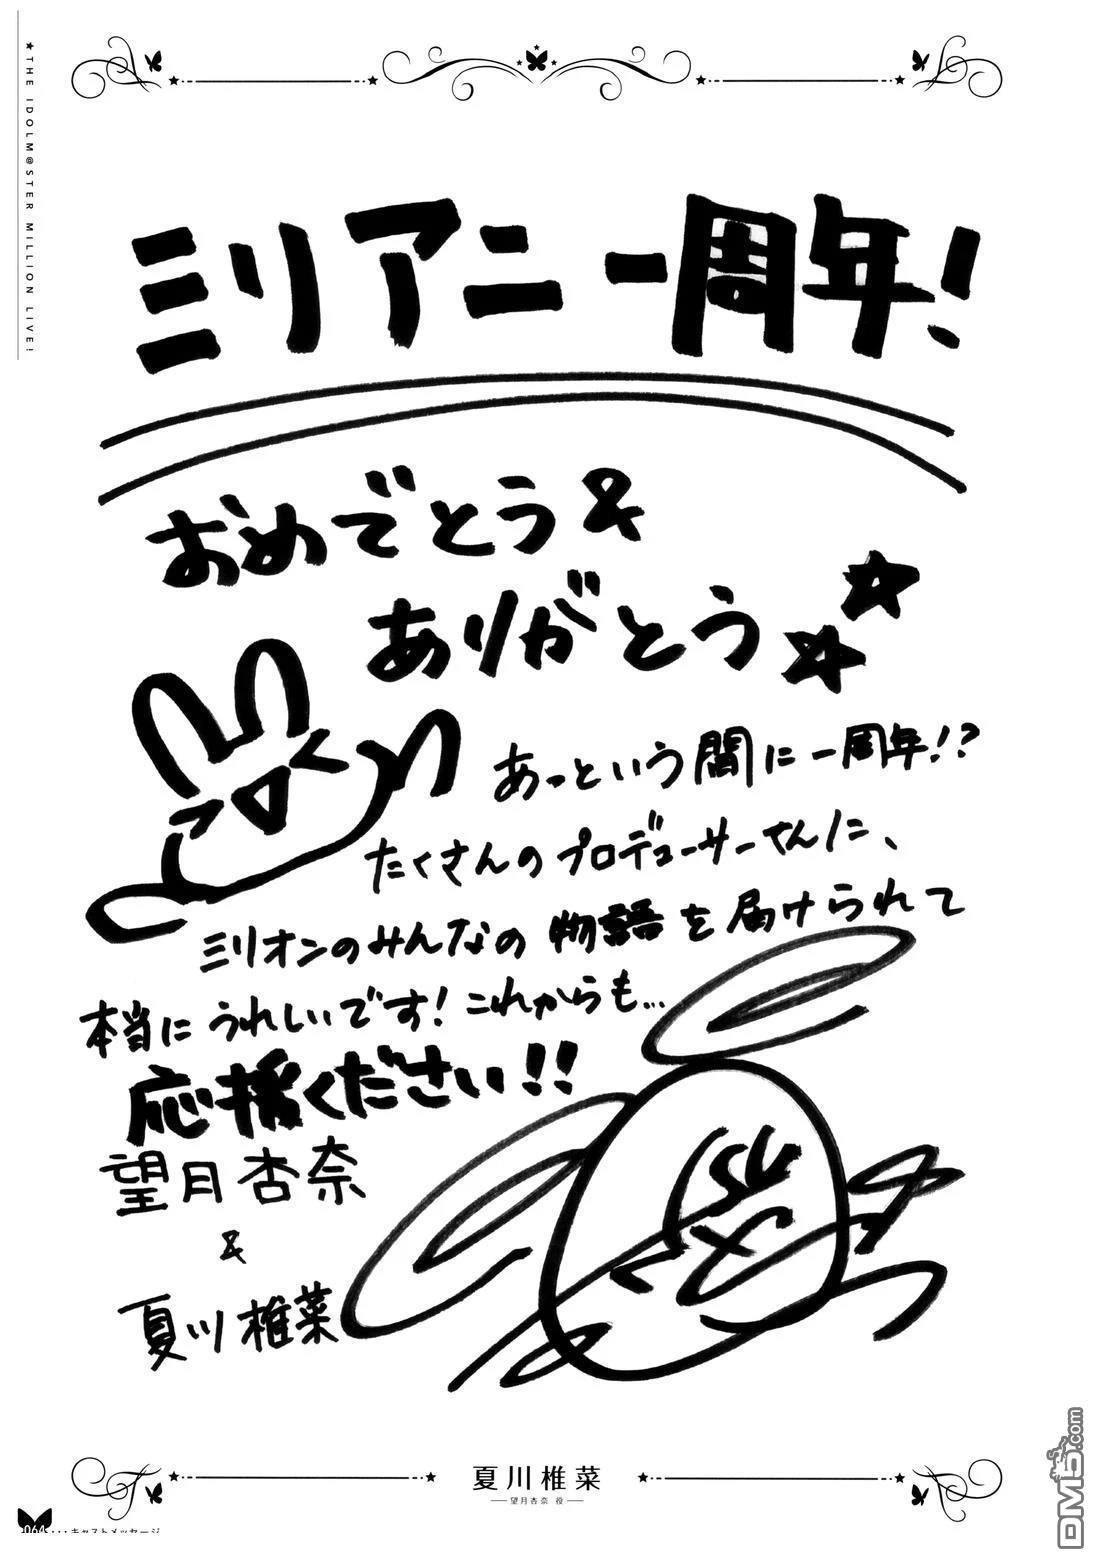 ★THE IDOLM@STER MILLION LIVE!
ミリアニ一周年!
おめでとう&
ありがとう☆☆
あっという間に一周年!?
たくさんのプロデューサーさんに、
ミリオンのみんなの物語を届けられて
本当にうれしいです!これからも…
応援ください!!
望月杏奈
&
夏川椎菜
夏川椎菜
望月杏奈 役
064 ・・・キャストメッセージ
DM5.com